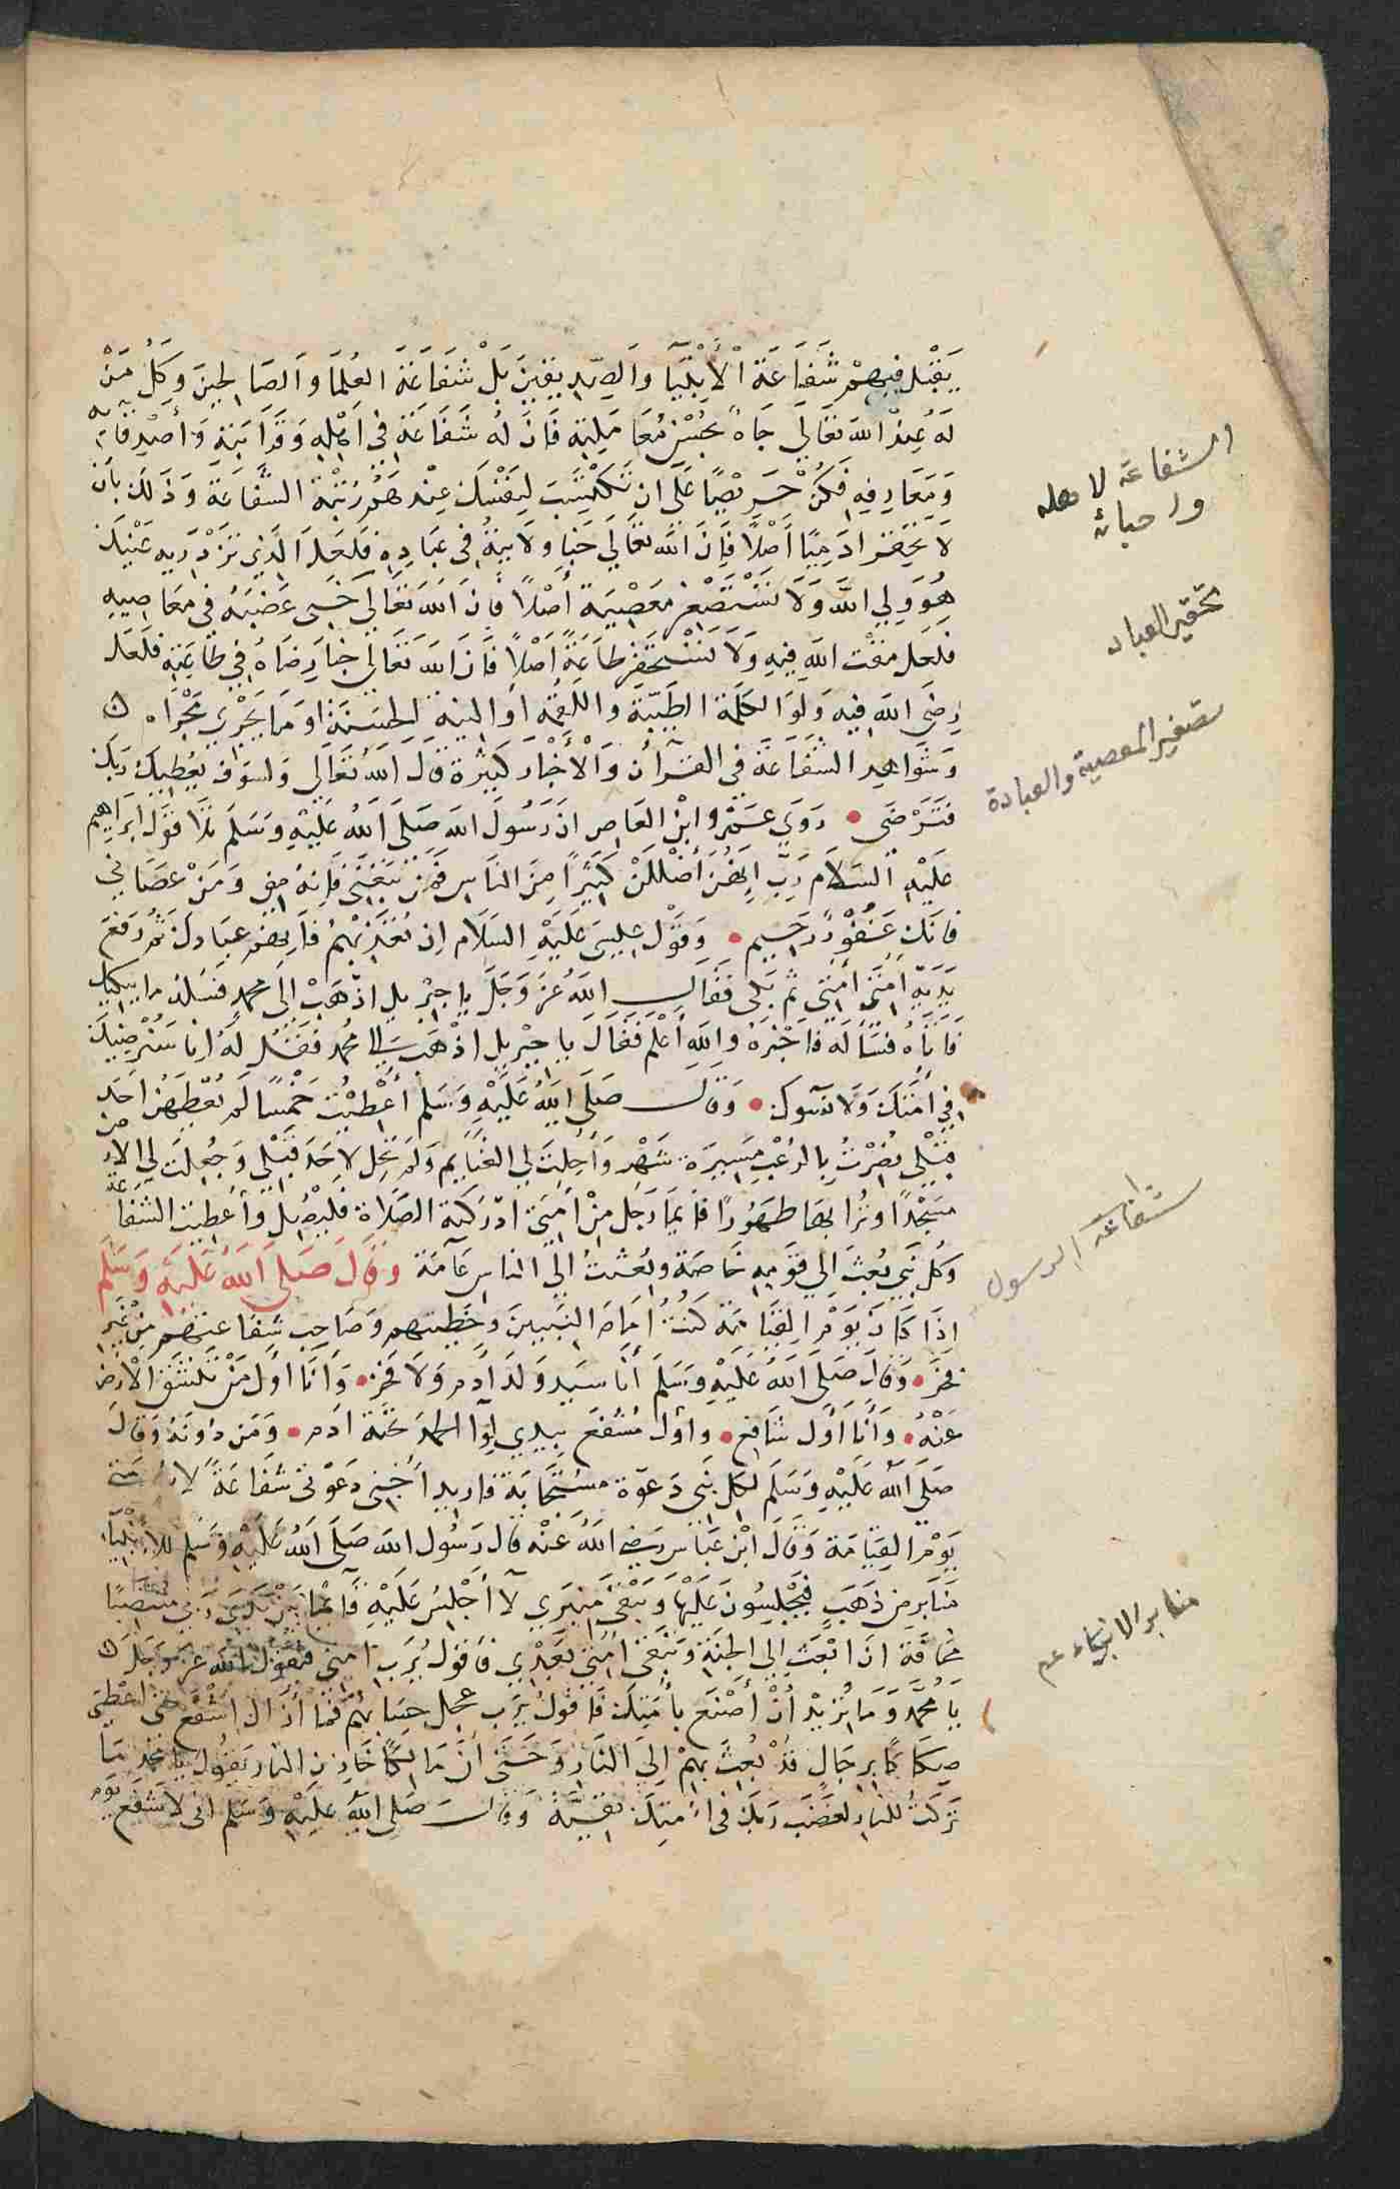 يَقْبل فيهمْ شَفَاعَة الْأَنْبيَآ وَالصّدِيقينَ بَلْ شَفَاعَةَ العُلمَا وَالصَالحِينَ وَكلُ مَنْ
لَه عِنْدَ الله تعَالى جَاهٌ بحُسْن مُعَامَلتِه فَان لهُ شَفَاعَة في اهْلِهِ وَقَرَابَتهِ وَأصْدِقآئِه
وَمَعَارِفِهِ فكنْ حَرِيصًا عَلَى ان تكْتَسِبَ لِنَفْسك عِنْدَهُمْ رُتْبَةَ الشَّفَاعَة وَذَلك بأن
لا تحقر ادَمِيًا أصْلًا فَإن الله تعَالى خَبأ ولايتهُ في عِبَادِه فلعَل الذِي تَزْدَرِيه عَيْنك
هُوَ وَلي الله وَلا تَسْتَصْغِر مَعْصِيَة أصْلاً فَان الله تعَالي خَبى غَضبَهُ في مَعَاصِيهِ
فلعَل مقْت الله فيهِ وَلا تَسْتَحْقِر طاعَةً أصْلاً فان الله تعَالي خبأ رضَاهُ في طَاعَتِهِ فلعَل
رضَى الله فيهِ وَلوَ الكلمَة الطَيّبَة وَاللقمَة اوَ النيةَ الحسَنةَ اوْ مَا يَجْرِي مَجْرَاه
وَشوَاهِد الشفَاعَة في القرْآن وَالأخْبَار كثيرَة قالَ الله تعَالَى وَلسَوف يُعْطيكَ رَبك
فترْضَى • رَوَي عَمْرو ابْن العَاص ان رَسُولَ الله صَلى الله عَليْهِ وَسَلم تلا قوْل ابرَاهِيم
عَليْهِ السَلام رَبّ إنهُن أضْللنَ كثيرًا مِنَ النَاس فمَن تبعَني فإنهُ مِني وَمَنْ عصَاني
فانك غفُورٌ رَحِيم • وَقوْل عِيسَى عَليْهِ السَلام ان تعَذبهُمْ فانهمْ عبَادك ثم رَفعَ
يَدَيهِ امَّتي امتي ثم بَكى فقَال الله عز وَجَل يا جبْريل اذهَبْ الى محمد فسَله ما يبكيك
فاتاهُ فسَألَه فاخْبَرَهُ وَالله أعْلم فقال يا جبْريل اذْهَب الى محمد فقُل لهُ انا سَنُرْضيك
في امّتك وَلا نسوءك • وَقال صَلى الله عَليْهِ وَسَلم أعْطيْتُ خَمْسًا لم يُعْطهُن احَد من
قبْلي نصِرْتُ بالرُعْبِ مَسِيرَة شهْر وَأحِلت لي الغنَايم وَلم تحِل لاحَد قبْلي وَجعِلت لي الارْض
مَسْجدًا وترابُهَا طهُورًا فايمَا رَجل منْ أمَتي ادْرَكته الصَلاة فليُصل وأعْطيت الشفاعة
وَكل نَبي بُعثَ الى قوْمِهِ خَاصَة وبُعثتُ الى الناس عَامَة وَقال صَلى الله عَليْهِ وَسَلم
اذَا كَانَ يَوْم القيَامَة كنْتُ امَام النبيينَ وَخطيبهم وَصَاحِب شفَاعَتهم منْ غَيْر
فخر • وَقال صَلى الله عَليْهِ وَسَلم أنَا سَيد وَلد آدم وَلا فخر • وَأنا أول مَنْ تنشَق الأرْض
عَنْهُ • وَأنا أول شافع • وَأول مُشفع بيَدي لوآ الحمد تحتَهُ آدم • وَمَن دونهُ وَقال
صَلى الله عَليْهِ وَسَلم لكل نَبي دَعوَة مسْتجابَة فاريد أن أختبي دعوَتي شفَاعَةً لأمتي
يَوْم القيَامَة وَقال ابْن عَباس رَضي الله عَنْه قال رَسُول الله صَلى الله عَليْهِ وَسَلم للأنْبيآء
مَنابر من ذهَب فيَجْلسُون عَليْهَا وَيَبْقى منبَري لا أجْلسُ عَليْهِ قآئمًا بَيْن يَدَيْ رَبي منتصبًا
مخافة ان ابْعَث الى الجنة وَتَبْقى امتي بَعْدي فاقول يَرَب امتي فيقول الله عز وَجَل
يَا محُمد وَمَا تُريْد أنْ أصْنع بأمتك فاقولُ يَرَب عجل حِسَابهُم فما أزَال اشْفع حتى اعْطي
صِكاكا برِجَالٍ قدْ بُعِثَ بهمْ إلى النار وَحَتى أن مَالكًا خازن النار يَقول يا محمد مَا
تركتَ للنار لغضَب رَبك في أمتك بَقيَّةً وَقال صَلى الله عليه وَسَلم اني لأشفع يَوْم
الشفاعة لاهله
واحبائه
تحقير العباد
تصغير المعصية والعبادة
شفاعة الرسول
منابر الانبياء عم